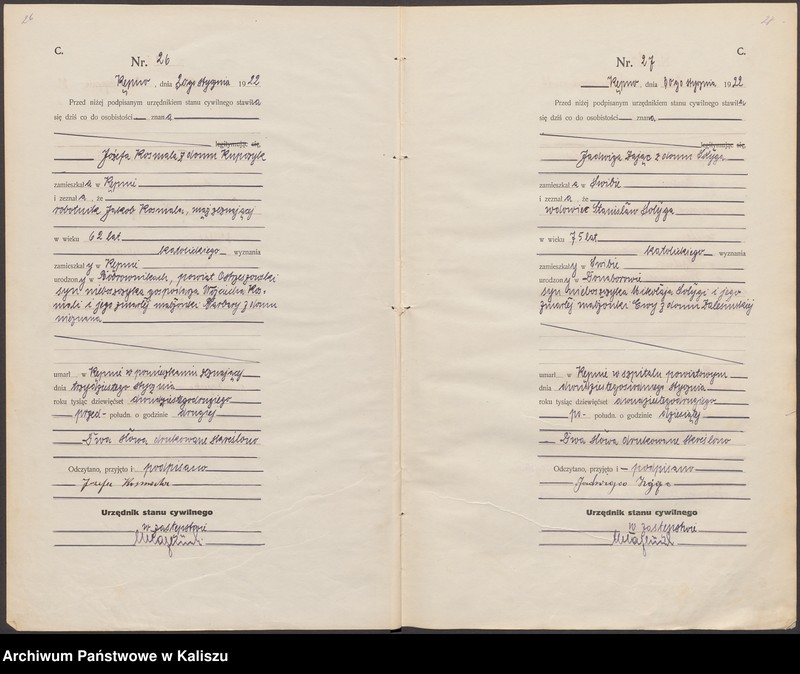 26
C.
Nr. 26
Kępno, dnia 30go stycznia 1922
Przed niżej podpisanym urzędnikiem stanu cywilnego stawiła
się dziś co do osobistości znana
legitymując się
Józefa Kosmala z domu Kupczyk
zamieszkała w Kępnie
i zeznała, że
robotnik Jakob Kosmala, mąż zeznającej
w wieku 62 lat
katolickiego wyznania
zamieszkały w Kępnie
urodzony w powiat Ostrzeszowski
syn nieboszczyka gospodarza Wojciecha Kos-
mali i jego zmarłej małżonki Barbary z domu
nieznana
umarł w Kępnie w pomieszkaniu zeznającej
dnia trzydziestego stycznia
roku tysiąc dziewięćset dwudziestegodrugiego
przed- połudn. o godzinie drugiej
Dwa słowa drukowane skreślono
Odczytano, przyjęto i podpisano
Józefa
Urzędnik stanu cywilnego
w zastępstwie
C.
Nr. 27
Kępno, dnia 30go stycznia 1922
Przed niżej podpisanym urzędnikiem stanu cywilnego stawiła
się dziś co do osobistości znana
legitymując się
Jadwiga Zając z domu Sołyga
zamieszkała w Świbie
i zeznała, że
wdowiec Stanisław Sołyga
w wieku 75 lat
katolickiego wyznania
zamieszkały w Świbie
urodzony w Donaborowie
syn nieboszczyka Mikołaja Sołygi i jego
zmarłej małżonki Ewy z domu
umarł w Kępnie w szpitalu powiatowym
dnia stycznia
roku tysiąc dziewięćset dwudziestegodrugiego
po- połudn. o godzinie
Dwa słowa drukowane skreślono
Odczytano, przyjęto i podpisano
Jadwiga
Urzędnik stanu cywilnego
w zastępstwie
Archiwum Państwowe w Kaliszu